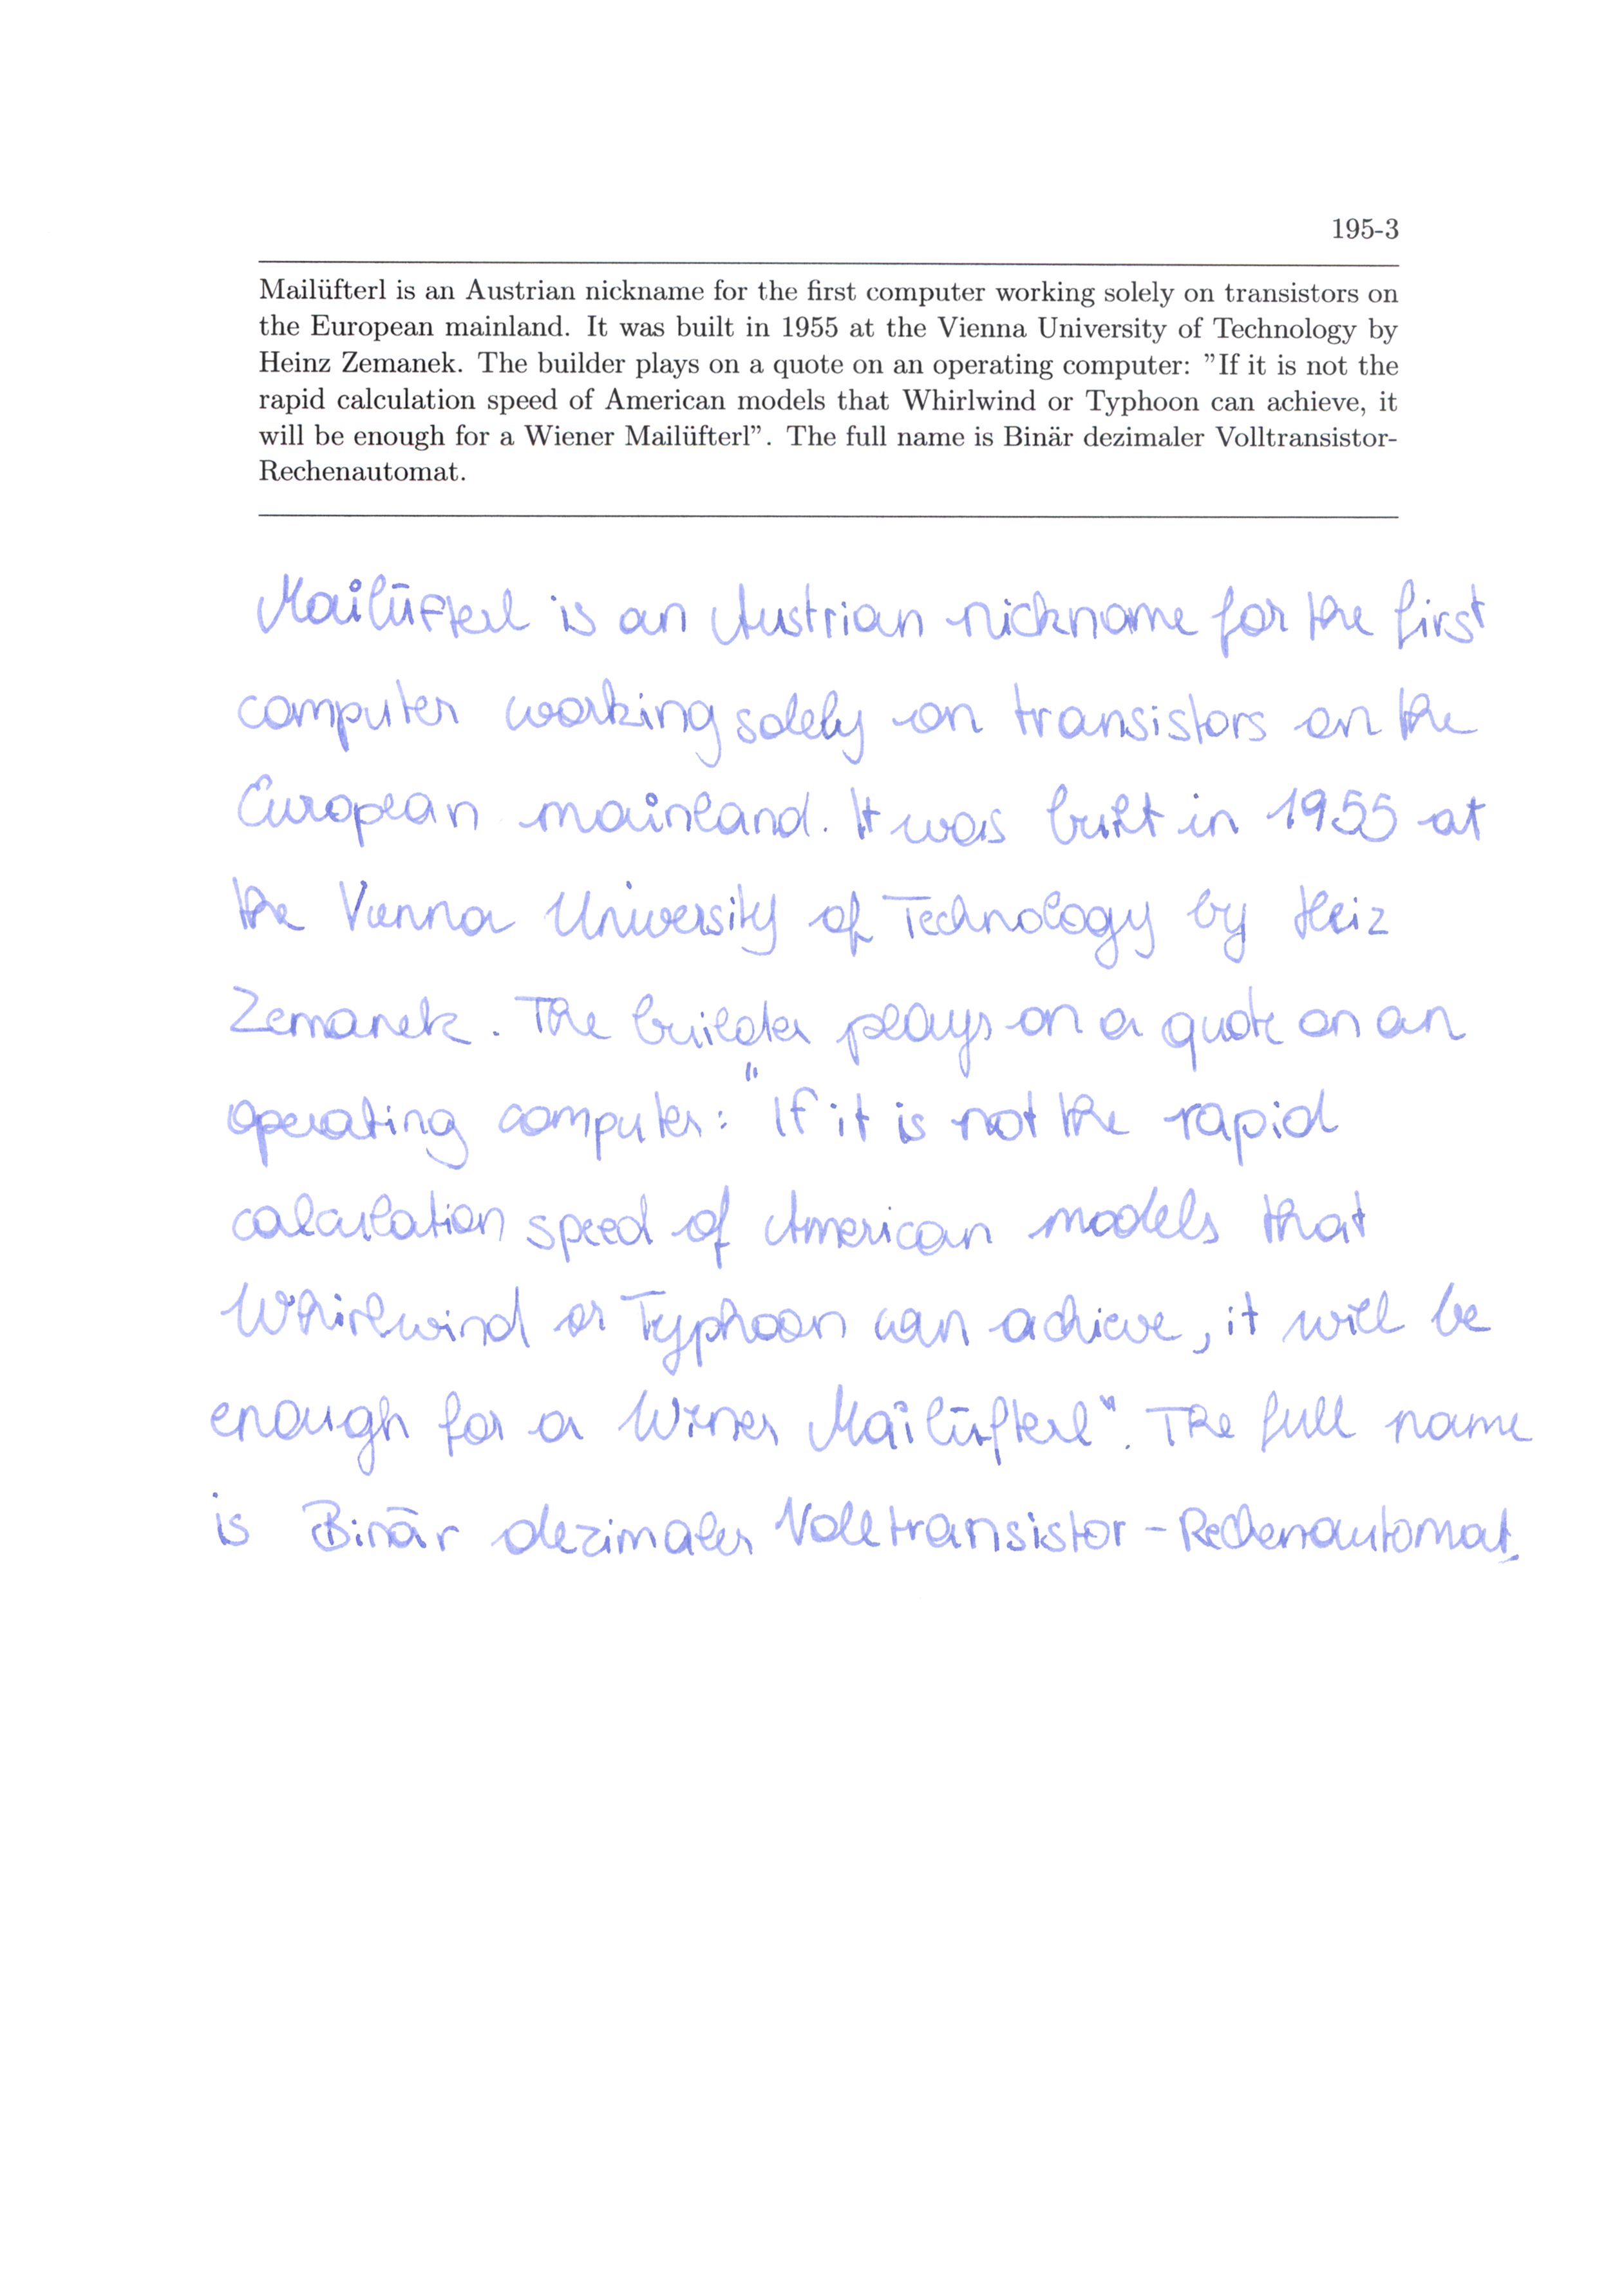 195-3
Mailüfterl is an Austrian nickname for the first computer working solely on transistors on
the European mainland. It was built in 1955 at the Vienna University of Technology by
Heinz Zemanek. The builder plays on a quote on an operating computer: ”If it is not the
rapid calculation speed of American models that Whirlwind or Typhoon can achieve, it
will be enough for a Wiener Mailüfterl”. The full name is Binär dezimaler Volltransistor-
Rechenautomat.
Mailüfterl is an Austrian nickname for the first
computer working solely on transistors on the
European mainland. It was built in 1955 at
the Vienna University of Technology by Heiz
Zemanek. The builder plays on a quote on an
operating computer: "If it is not the rapid
calculation speed of American models that
Whirlwind or Typhoon can achieve, it will be
enough for a Wiener Mailüfterl". The full name
is Binär dezimaler Volltransistor-Rechenautomat.